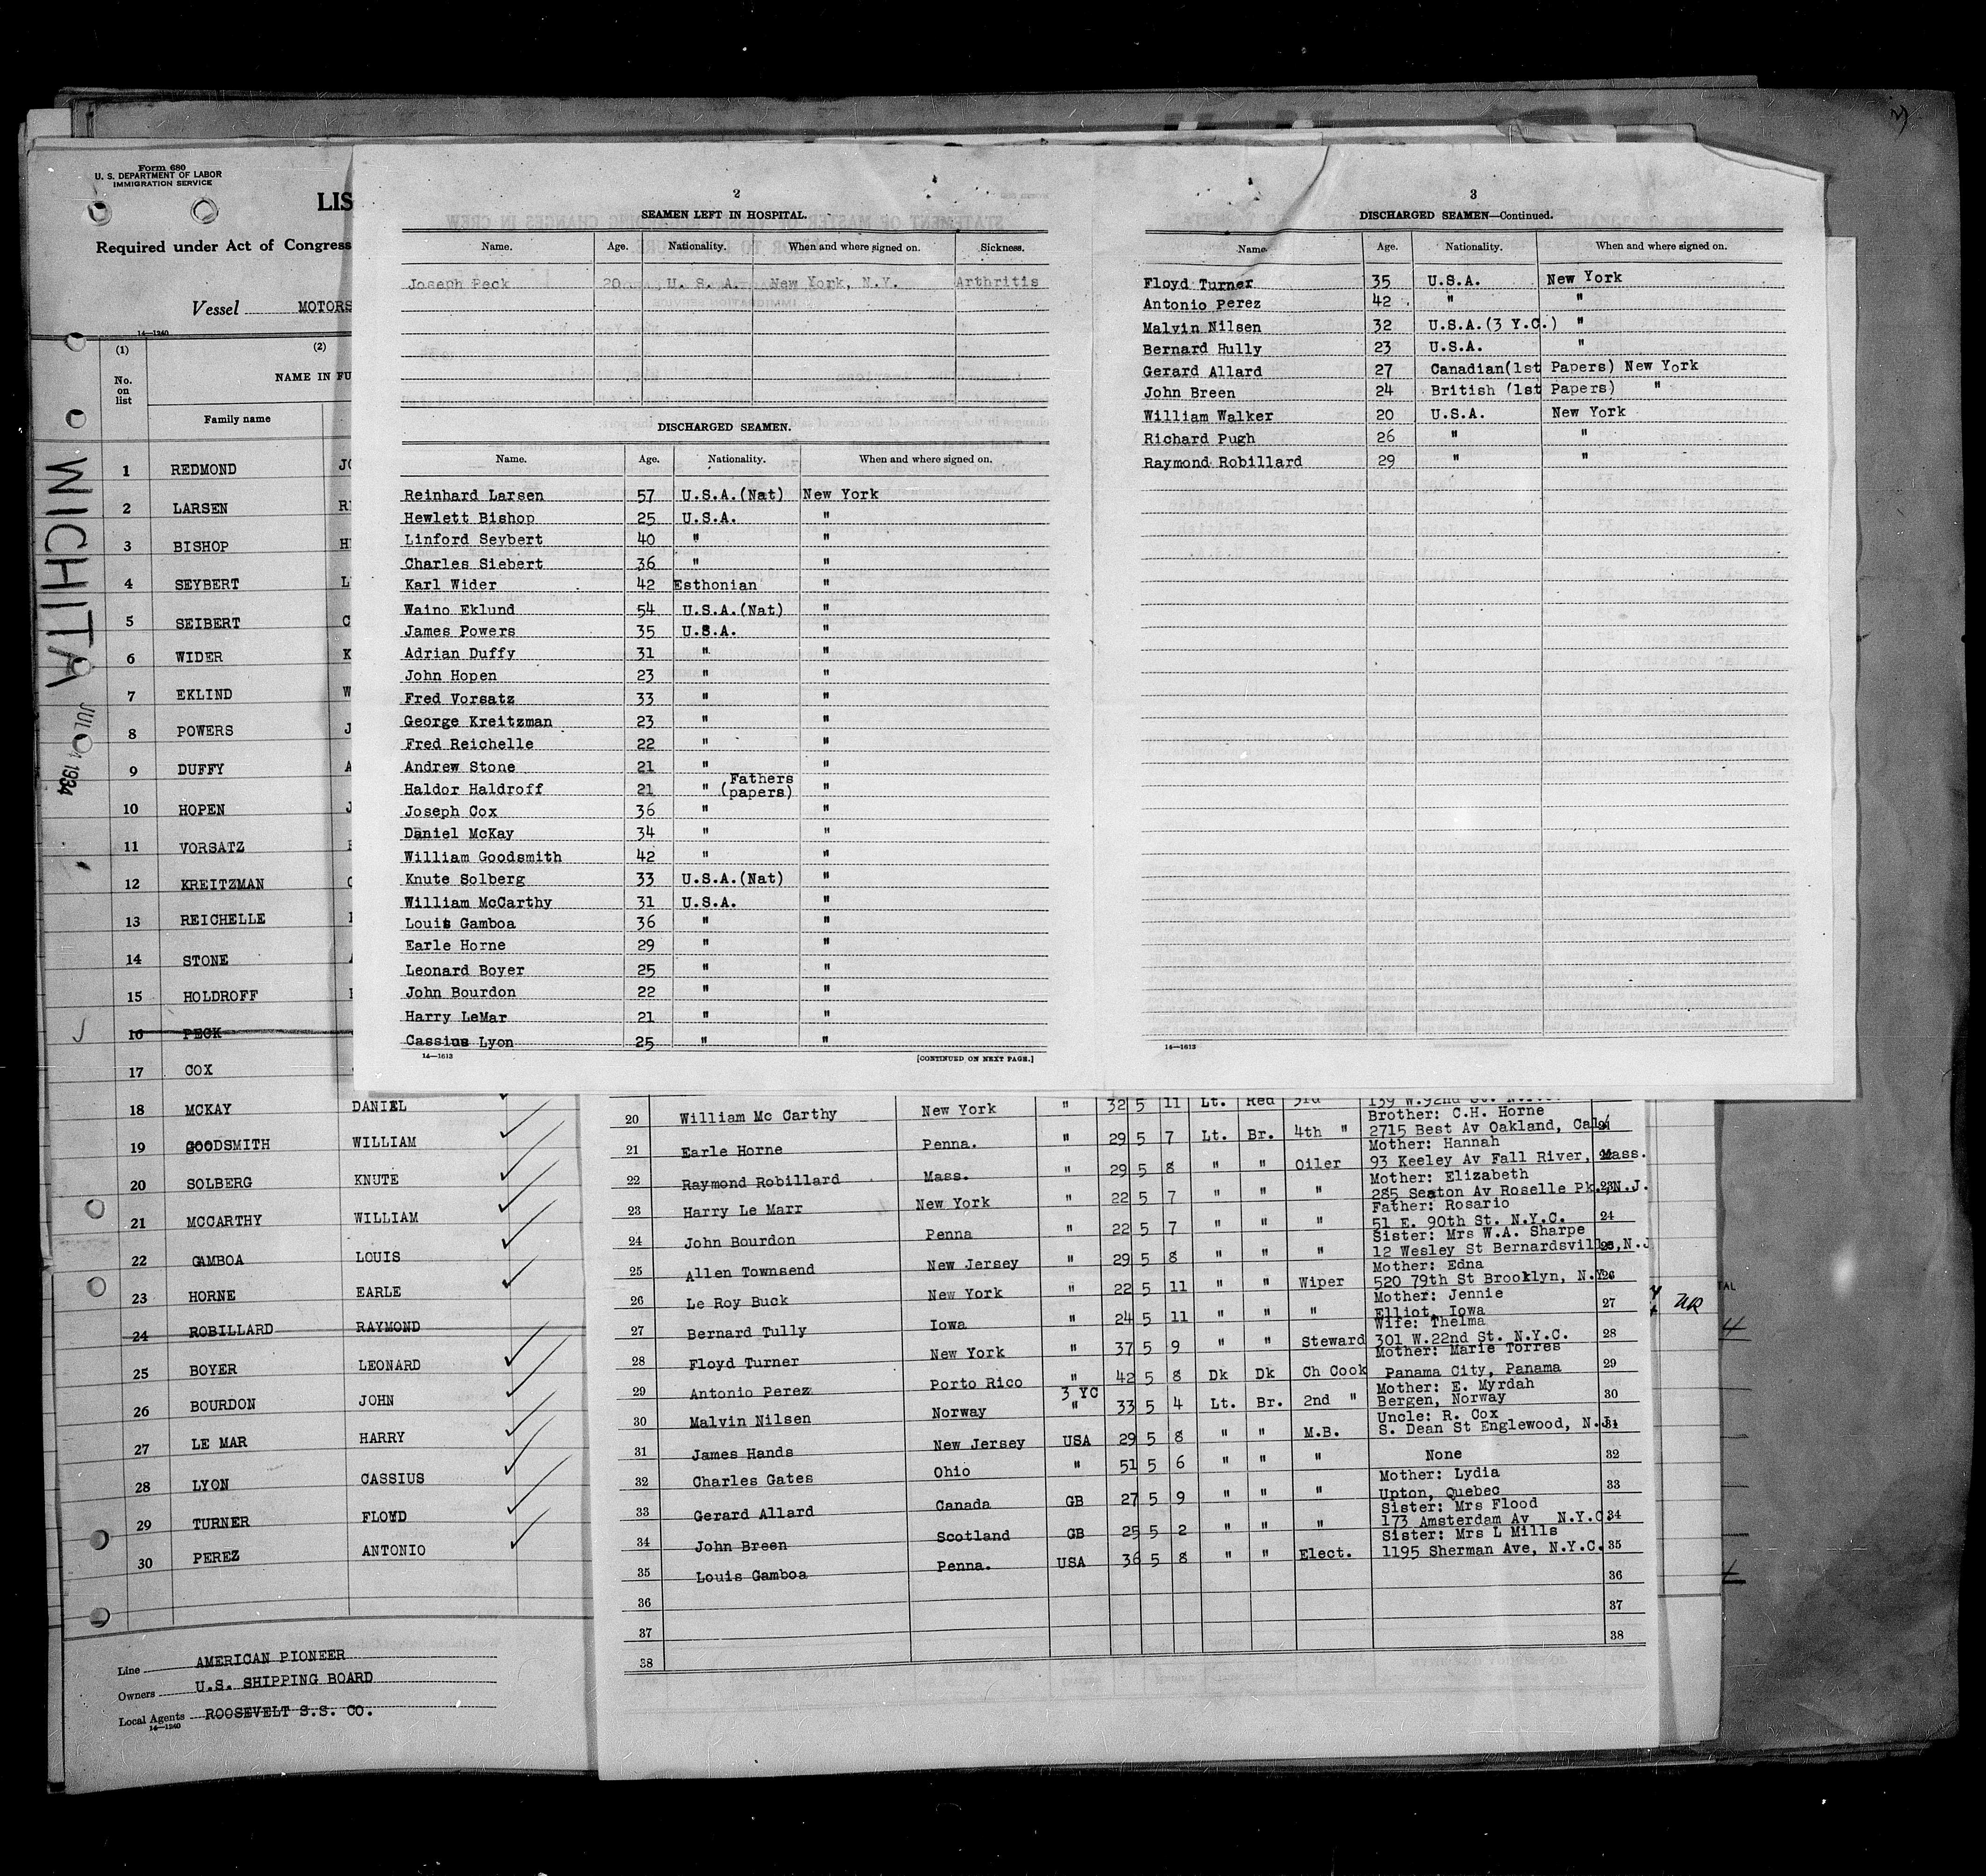 Form 680
U. S. DEPARTMENT OF LABOR
IMMIGRATION SERVICE
LIS
Required under Act of Congress
Vessel MOTORS
14—1240
(1) (2)
No. on list NAME IN FU
Family name
1 REDMOND JO
2 LARSEN RE
3 BISHOP HE
4 SEYBERT L
5 SEIBERT C
6 WIDER K
7 EKLIND W
8 POWERS J
9 DUFFY A
10 HOPEN J
11 VORSATZ
12 KREITZMAN
13 REICHELLE
14 STONE
15 HOLDROFF
16 PECK
17 COX
18 MCKAY DANIEL
19 GOODSMITH WILLIAM
20 SOLBERG KNUTE
21 MCCARTHY WILLIAM
22 GAMBOA LOUIS
23 HORNE EARLE
24 ROBILLARD RAYMOND
25 BOYER LEONARD
26 BOURDON JOHN
27 LE MAR HARRY
28 LYON CASSIUS
29 TURNER FLOYD
30 PEREZ ANTONIO
Line AMERICAN PIONEER
Owners U.S. SHIPPING BOARD
Local Agents ROOSEVELT S.S. CO.
14—1240
WICHITA
JUL 1934
2
SEAMEN LEFT IN HOSPITAL.
Name. Age. Nationality. When and where signed on. Sickness.
Joseph Peck 20 U. S. A. New York, N.Y. Arthritis
DISCHARGED SEAMEN.
Name. Age. Nationality. When and where signed on.
Reinhard Larsen 57 U.S.A.(Nat) New York
Hewlett Bishop 25 U.S.A. "
Linford Seybert 40 " "
Charles Siebert 36 " "
Karl Wider 42 Esthonian "
Waino Eklund 54 U.S.A.(Nat) "
James Powers 35 U.S.A. "
Adrian Duffy 31 " "
John Hopen 23 " "
Fred Vorsatz 33 " "
George Kreitzman 23 " "
Fred Reichelle 22 " "
Andrew Stone 21 " "
Haldror Haldroff 21 " Fathers (papers) "
Joseph Cox 36 " "
Daniel McKay 34 " "
William Goodsmith 42 " "
Knute Solberg 33 U.S.A.(Nat) "
William McCarthy 31 U.S.A. "
Louis Gamboa 36 " "
Earle Horne 29 " "
Leonard Boyer 25 " "
John Bourdon 22 " "
Harry LeMar 21 " "
Cassius Lyon 25 " "
14—1613 [CONTINUED ON NEXT PAGE.]
3
DISCHARGED SEAMEN—Continued.
Name Age. Nationality. When and where signed on.
Floyd Turner 35 U.S.A. New York
Antonio Perez 42 " "
Malvin Nilsen 32 U.S.A.(3 Y.C.) "
Bernard Hully 23 U.S.A. "
Gerard Allard 27 Canadian(1st Papers) New York
John Breen 24 British (1st Papers) "
William Walker 20 U.S.A. New York
Richard Pugh 26 " "
Raymond Robillard 29 " "
14—1613
20 William Mc Carthy New York " 32 5 11 Lt. Red 3rd 139 W.92nd St.
Brother: C.H. Horne
21 Earle Horne Penna. " 29 5 7 Lt. Br. 4th " 2715 Best Av Oakland, Cal.
Mother: Hannah
22 Raymond Robillard Mass. " 29 5 8 " " Oiler 93 Keeley Av Fall River, Mass. 22
Mother: Elizabeth
23 Harry Le Marr New York " 22 5 7 " " " 285 Seaton Av Roselle Pk., N.J. 23
Father: Rosario
24 John Bourdon Penna " 22 5 7 " " " 51 E. 90th St. N.Y.C. 24
Sister: Mrs W.A. Sharpe
25 Allen Townsend New Jersey " 29 5 8 " " " 12 Wesley St Bernardsville, N.J 25
Mother: Edna
26 Le Roy Buck New York " 22 5 11 " " Wiper 520 79th St Brooklyn, N.Y. 26
Mother: Jennie
27 Bernard Tully Iowa " 24 5 11 " " " Elliot, Iowa 27
Wife: Thelma
28 Floyd Turner New York " 37 5 9 " " Steward 301 W.22nd St. N.Y.C. 28
Mother: Marie Torres
29 Antonio Perez Porto Rico " 42 5 8 Dk Dk Ch Cook Panama City, Panama 29
Mother: E. Myrdah
30 Malvin Nilsen Norway 3 YC " 33 5 4 Lt. Br. 2nd " Bergen, Norway 30
Uncle: R. Cox
31 James Hands New Jersey USA 29 5 8 " " M.B. S. Dean St Englewood, N.J. 31
32 Charles Gates Ohio " 51 5 6 " " " None 32
Mother: Lydia
33 Gerard Allard Canada GB 27 5 9 " " " Upton, Quebec 33
Sister: Mrs Flood
34 John Breen Scotland GB 25 5 2 " " " 173 Amsterdam Av N.Y.C. 34
Sister: Mrs L Mills
35 Louis Gamboa Penna. USA 36 5 8 " " Elect. 1195 Sherman Ave, N.Y.C. 35
36 36
37 37
38 38
TAL